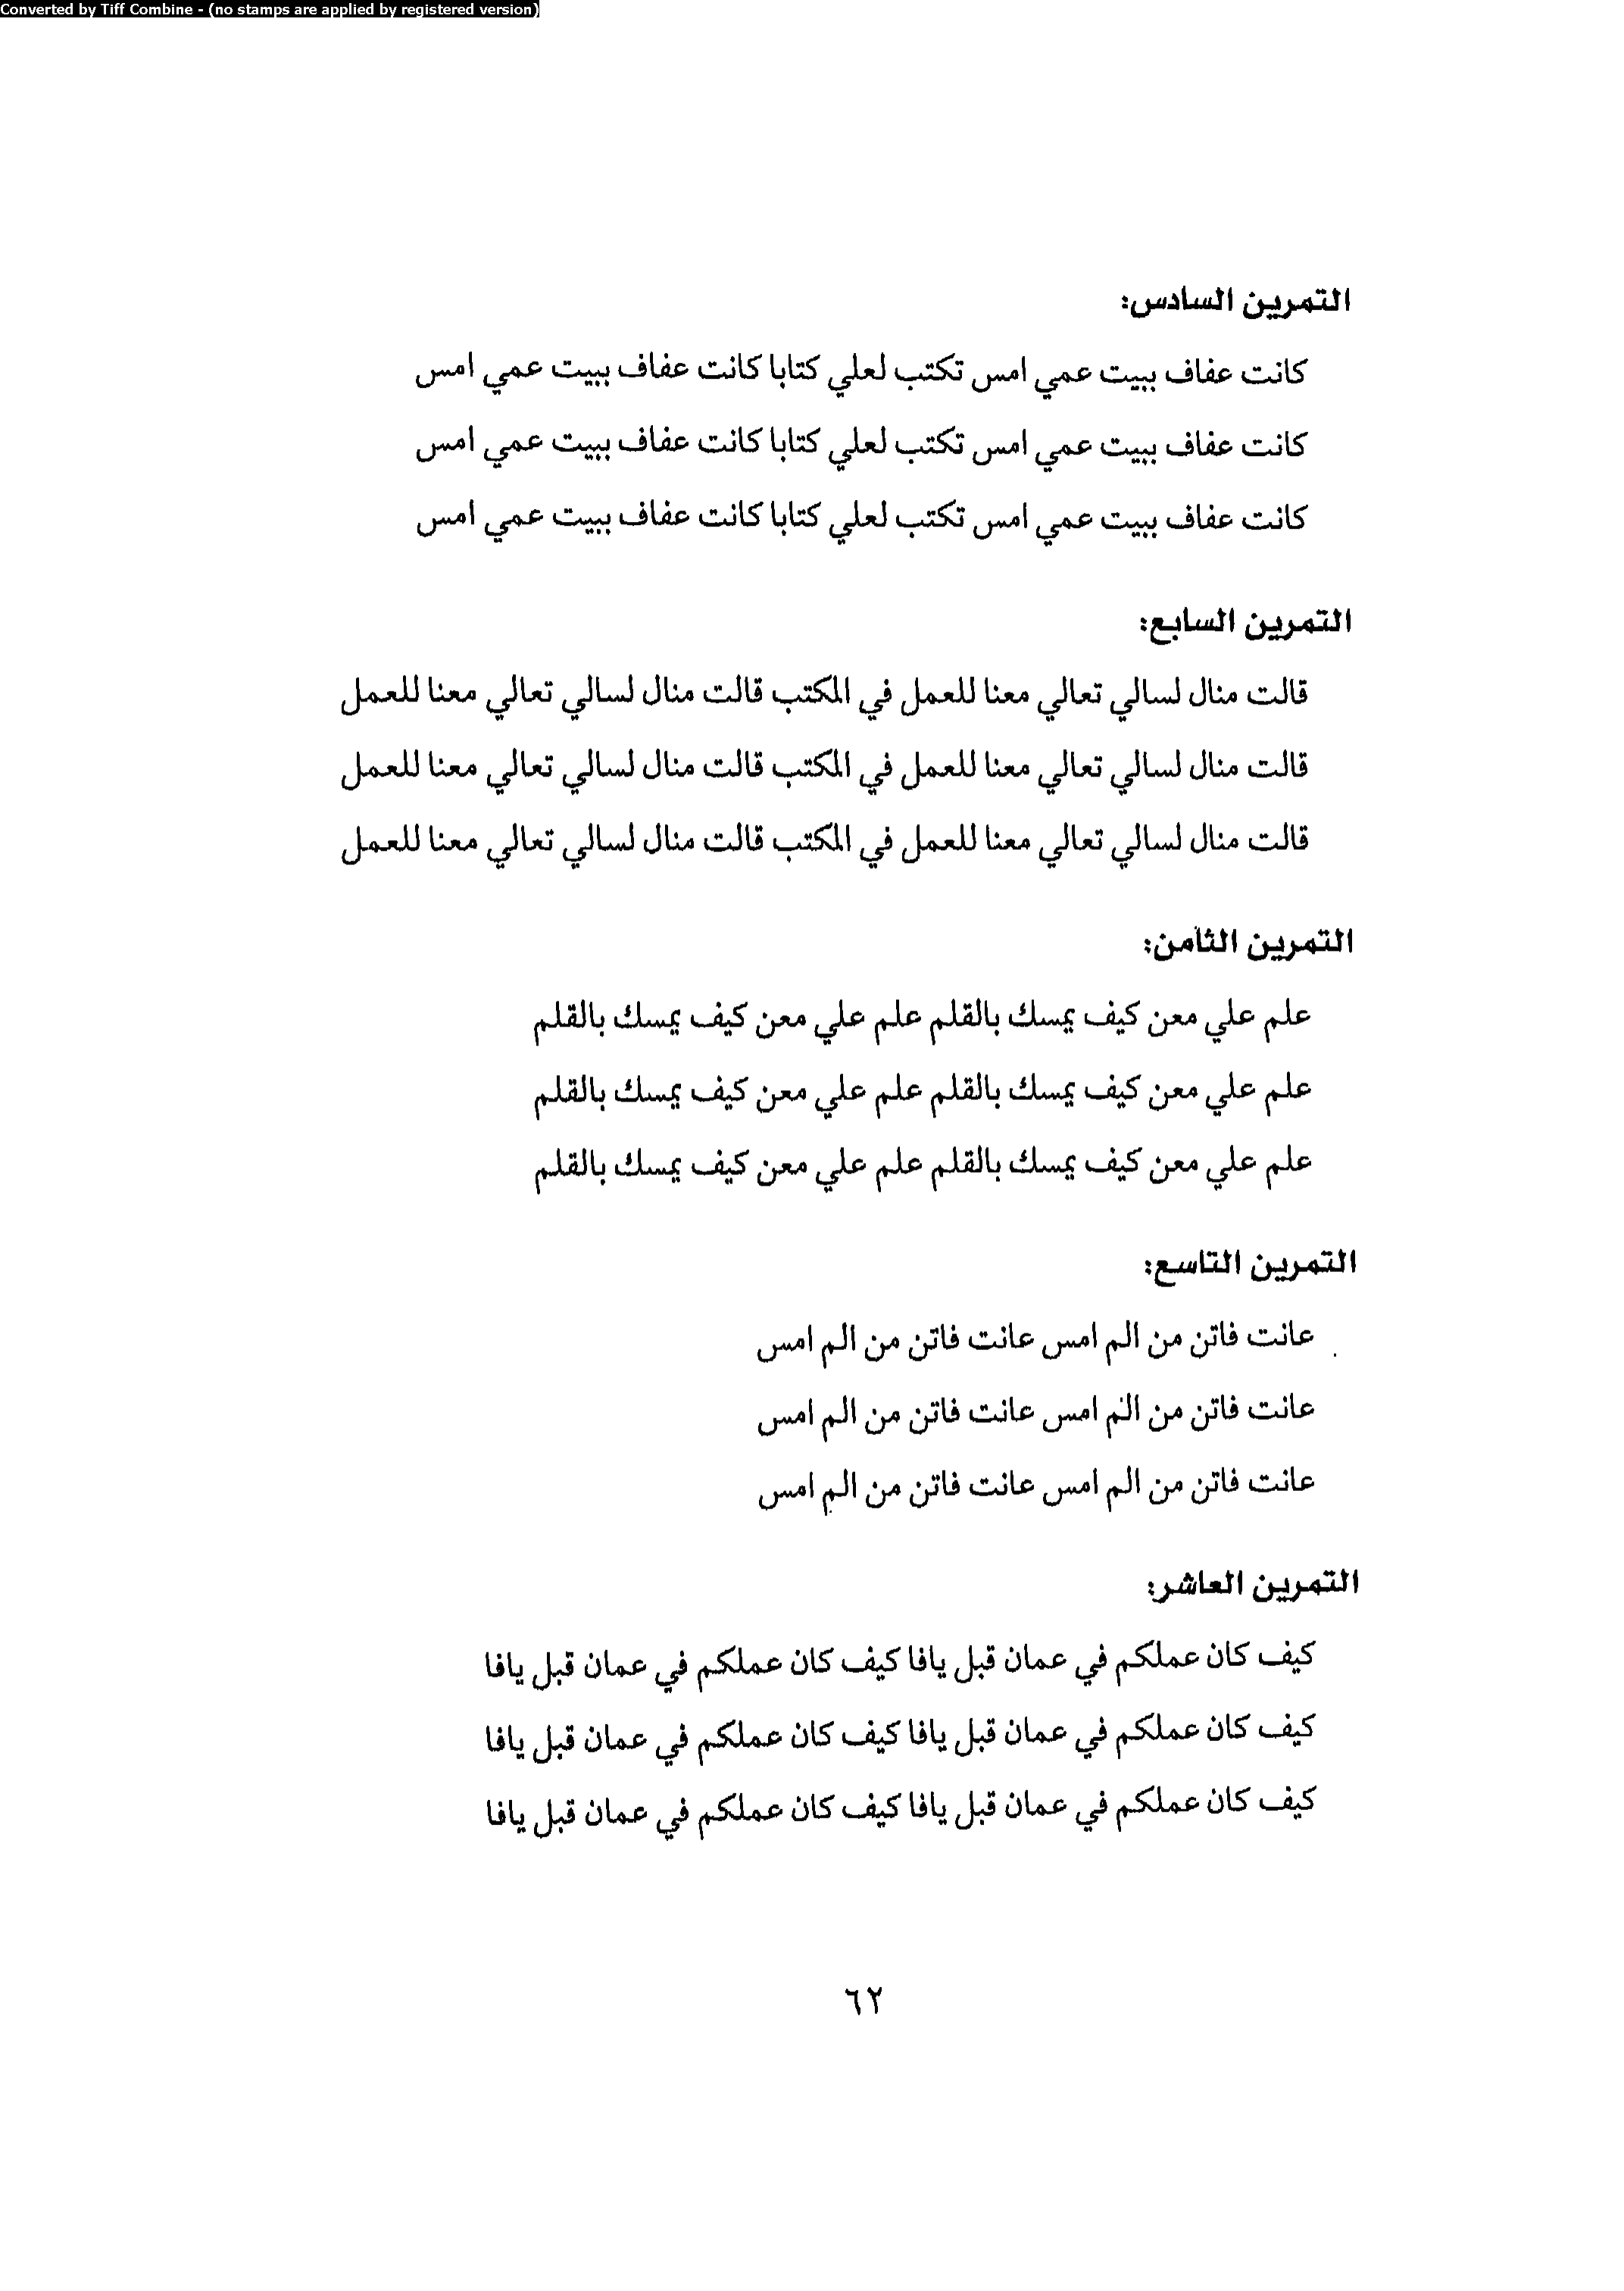 Converted by Tiff Combine - (no stamps are applied by registered version)
التمرين السادس:
كانت عفاف ببيت عمي امس تكتب لعلي كتابا كانت عفاف ببيت عمي امس
كانت عفاف ببيت عمي امس تكتب لعلي كتابا كانت عفاف ببيت عمي امس
كانت عفاف ببيت عمي امس تكتب لعلي كتابا كانت عفاف ببيت عمي امس
التمرين السابع:
قالت منال لسالي تعالي معنا للعمل في المكتب قالت منال لسالي تعالي معنا للعمل
قالت منال لسالي تعالي معنا للعمل في المكتب قالت منال لسالي تعالي معنا للعمل
قالت منال لسالي تعالي معنا للعمل في المكتب قالت منال لسالي تعالي معنا للعمل
التمرين الثامن:
علم علي معن كيف يمسك بالقلم علم علي معن كيف يمسك بالقلم
علم علي معن كيف يمسك بالقلم علم علي معن كيف يمسك بالقلم
علم علي معن كيف يمسك بالقلم علم علي معن كيف يمسك بالقلم
التمرين التاسع:
عانت فاتن من الم امس عانت فاتن من الم امس
عانت فاتن من الم امس عانت فاتن من الم امس
عانت فاتن من الم امس عانت فاتن من الم امس
التمرين العاشر:
كيف كان عملكم في عمان قبل يافا كيف كان عملكم في عمان قبل يافا
كيف كان عملكم في عمان قبل يافا كيف كان عملكم في عمان قبل يافا
كيف كان عملكم في عمان قبل يافا كيف كان عملكم في عمان قبل يافا
٦٢